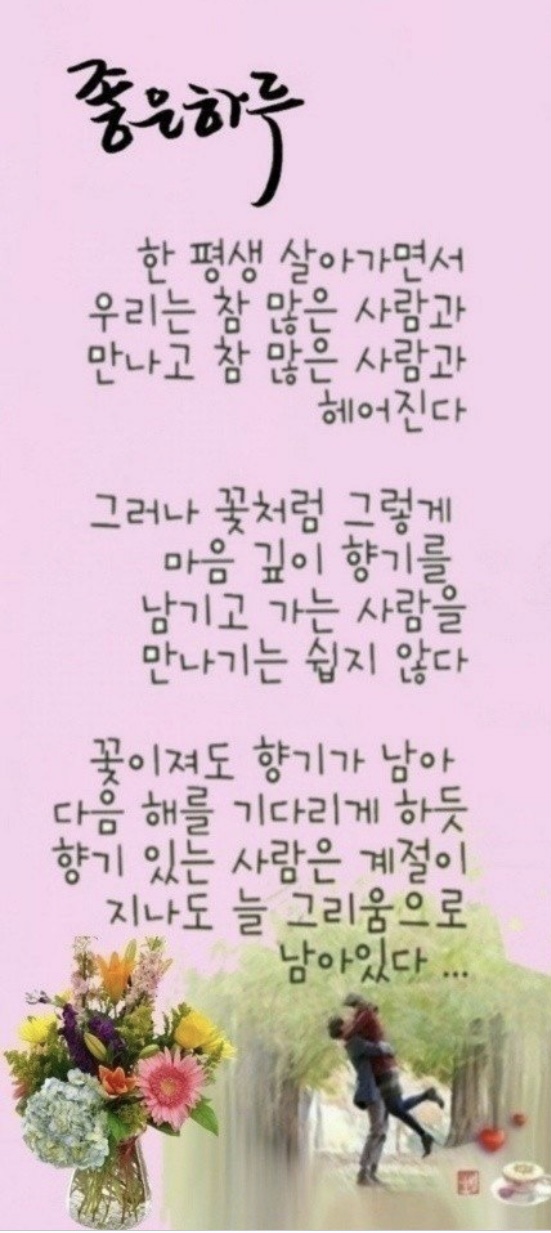 좋은하루
한 평생 살아가면서
우리는 참 많은 사람과
만나고 참 많은 사람과
헤어진다
그러나 꽃처럼 그렇게
마음 깊이 향기를
남기고 가는 사람을
만나기는 쉽지 않다
꽃이져도 향기가 남아
다음 해를 기다리게 하듯
향기 있는 사람은 계절이
지나도 늘 그리움으로
남아있다 ...